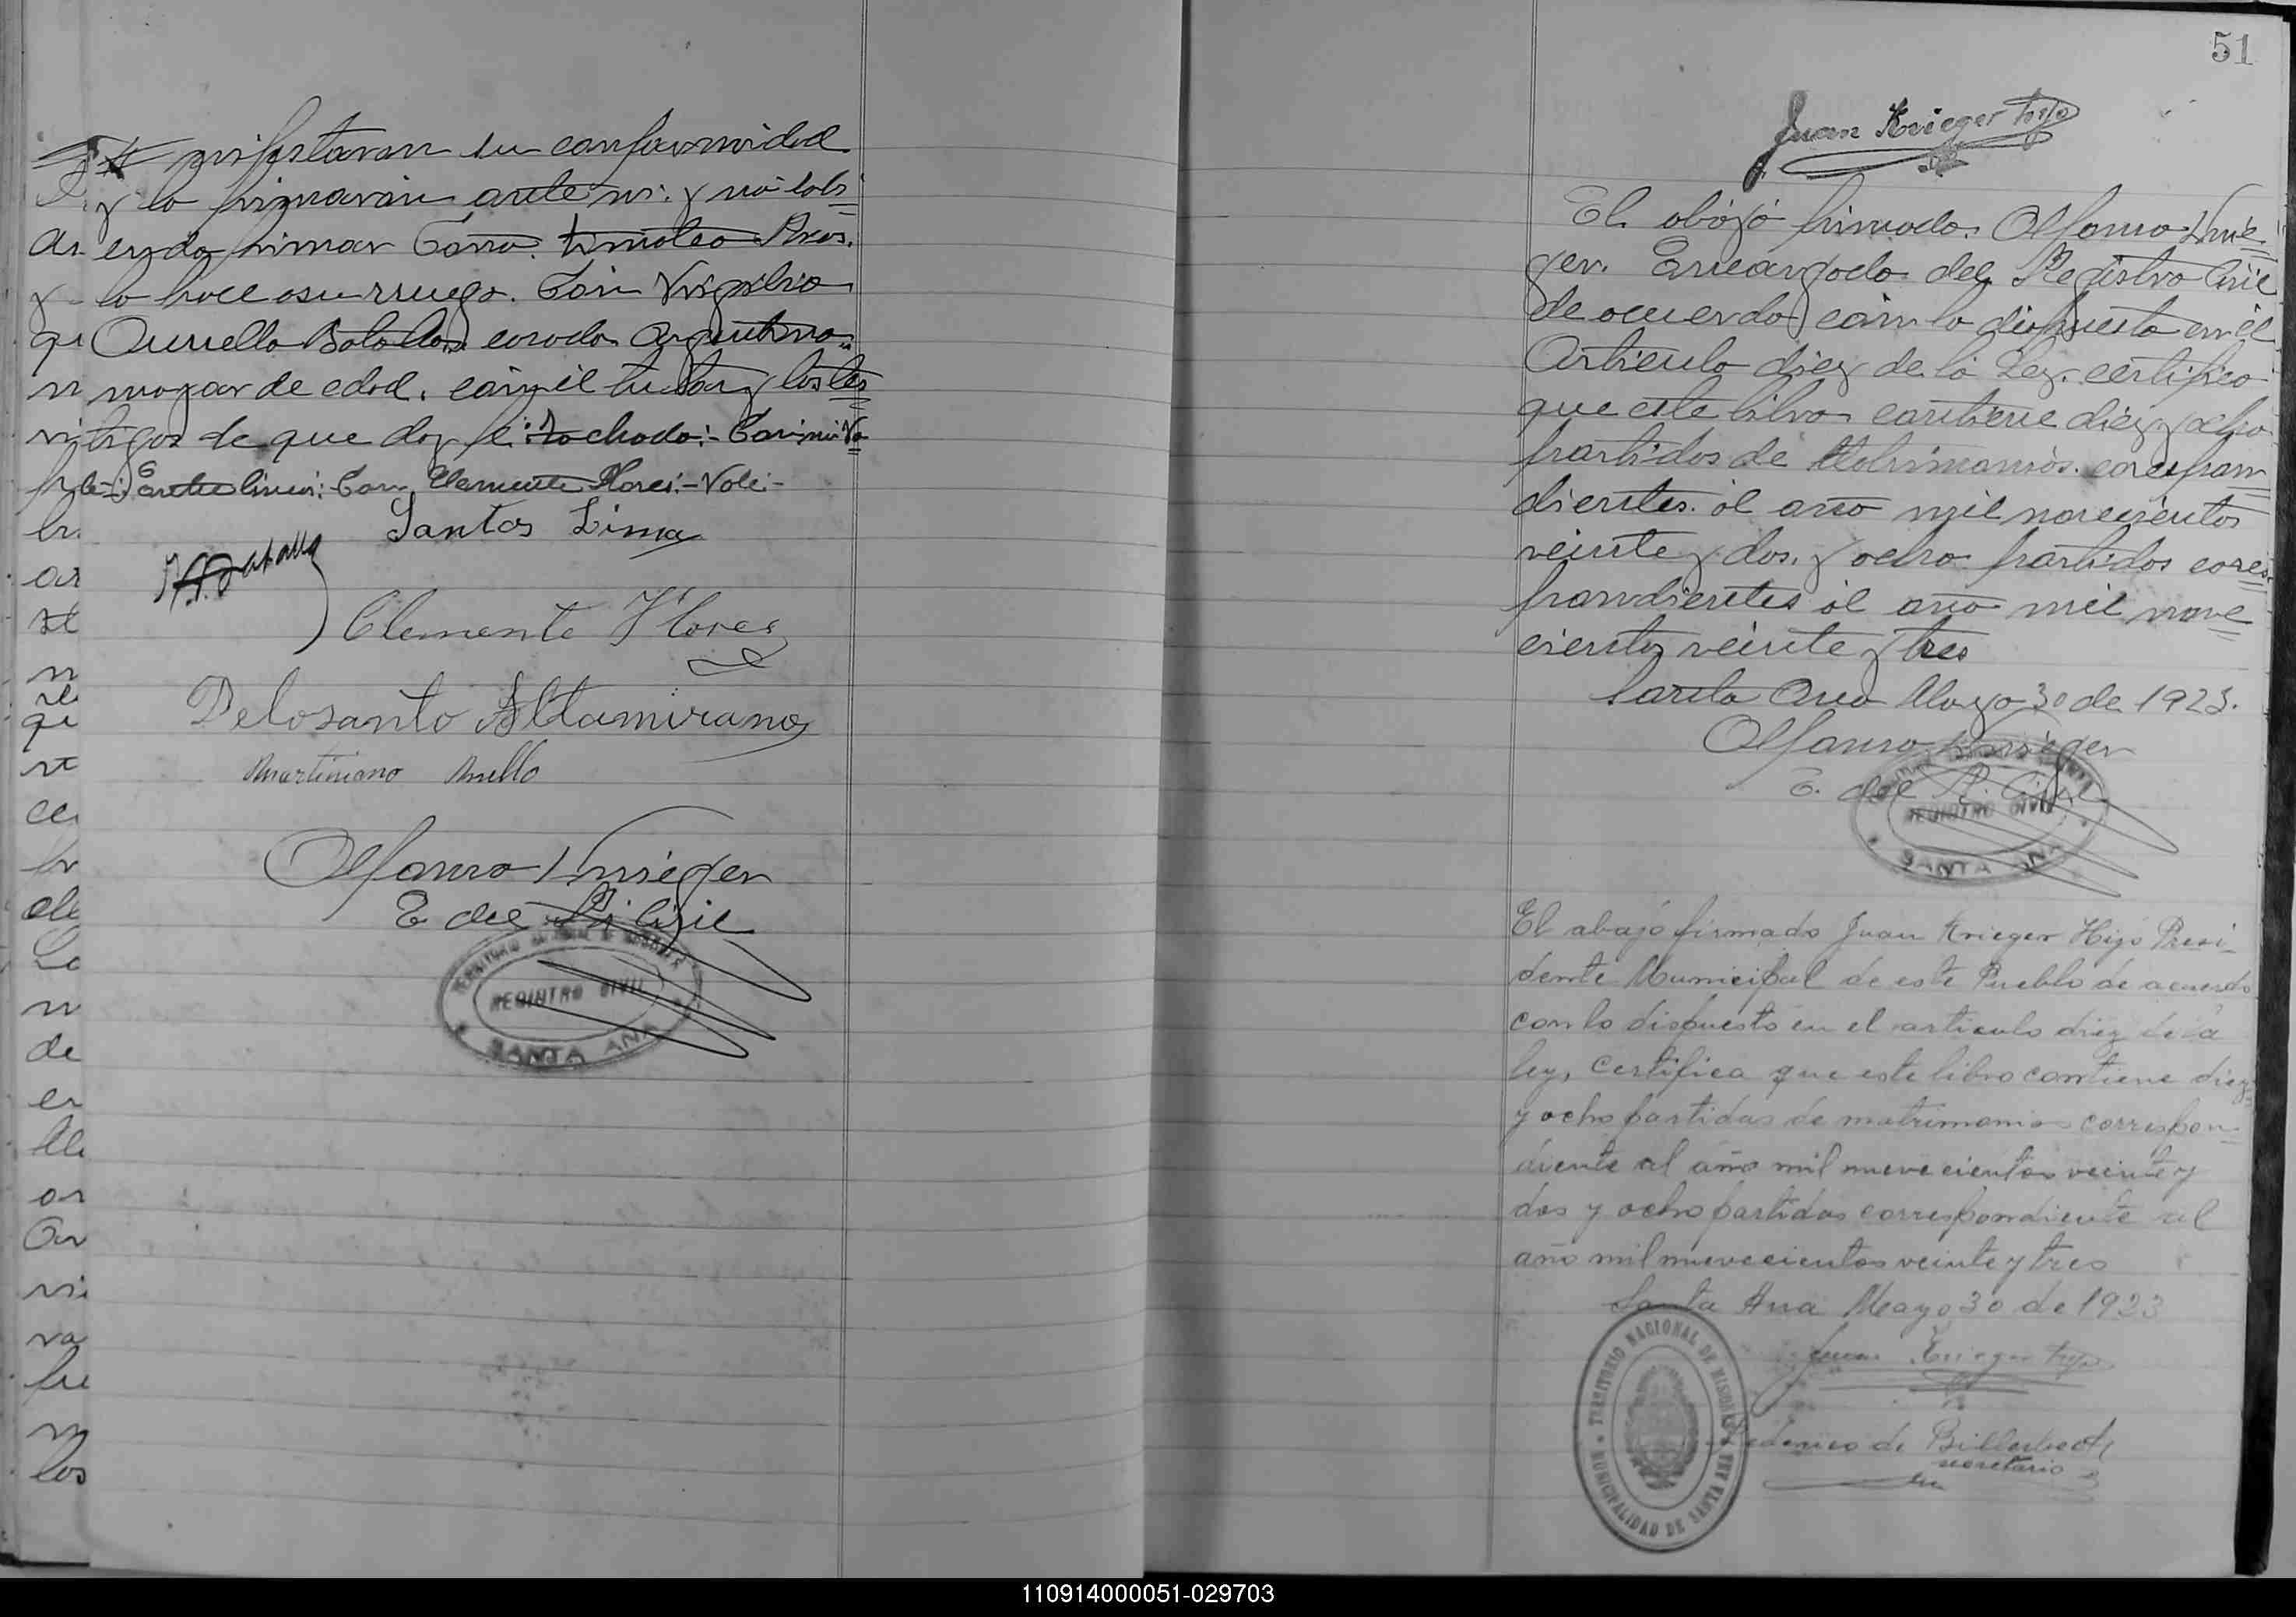 nifestaron su conformidad
y lo firmaron ante mi. y no sabi
endo firmar Doña. Timotea Rios.
lo hace a su ruego. Don Virgilio
Aurelio Batalla casado Argentino
mayor de edad. con el tutor y los tes
tigos de que doy fé: tachado:- Con mi Va
le-: Entre lineas: Don Clemente Flores:- Vale-
Santos Lima
V.A. Batalla
Clemente Flores
Delosanto Altamirano
Martiniano Anello
Alfonso Krieger
E del R. Civil
TERRITORIO NACIONAL DE MISIONES
REGISTRO CIVIL
SANTA ANA
an
y
qu
n
ni
br
ar
n
qu
de
Lo
n
de
er
an
vi
va
fu
m
los
51
Juan Krieger hijo
El abajo firmado. Alfonso Krie
ger. Encargado del Registro Civil
de acuerdo con lo dispuesto en el
Articulo diez de la Ley. certifico
que este libro contiene diez y ocho
partidas de Matrimonios. corespon
dientes. al año mil novecientos
veinte y dos. y ocho partidas cores
pondientes al año mil nove
cientos veinte y tres
Santa Ana Mayo 30 de 1923.
Alfonso Krieger
E. del R. Civil
REGISTRO CIVIL
SANTA ANA
El abajo firmado Juan Krieger Hijo Presi-
dente Municipal de este Pueblo de acuerdo
con lo dispuesto en el articulo diez de la
ley, certifica que este libro contiene diez
y ocho partidas de matrimonios correspon-
diente al año mil nueve cientos veinte y
dos y ocho partidas correspondiente al
año mil nueve cientos veinte y tres
Santa Ana Mayo 30 de 1923
Juan Krieger hijo
Federico de Billerbeck
secretario
TERRITORIO NACIONAL DE MISIONES
MUNICIPALIDAD DE SANTA ANA
110914000051-029703